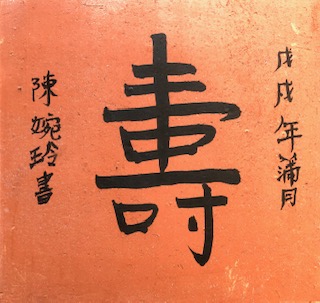 戊戌年蒲月
壽
陳婉玲書